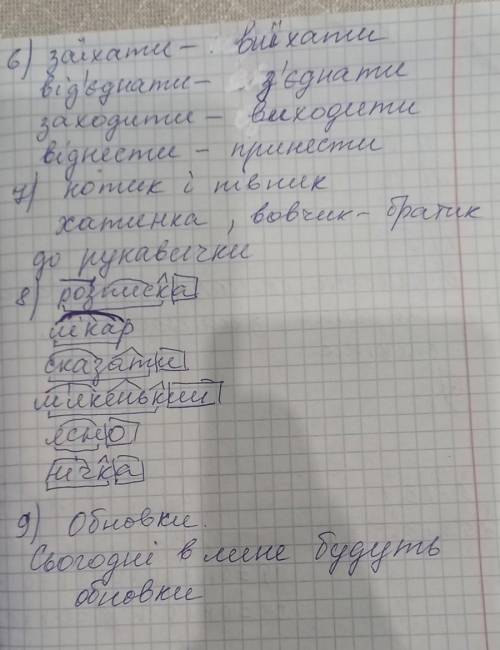 6) заїхати - виїхати
від'єднати - з'єднати
заходити - виходити
віднести - принести
7) котик і півник
хатинка, вовчик - братик
до рукавички
8) розписка
лікар
сказати
мякенький
ясно
нічка
9) Обновки.
Сьогодні в мене будуть
обновки